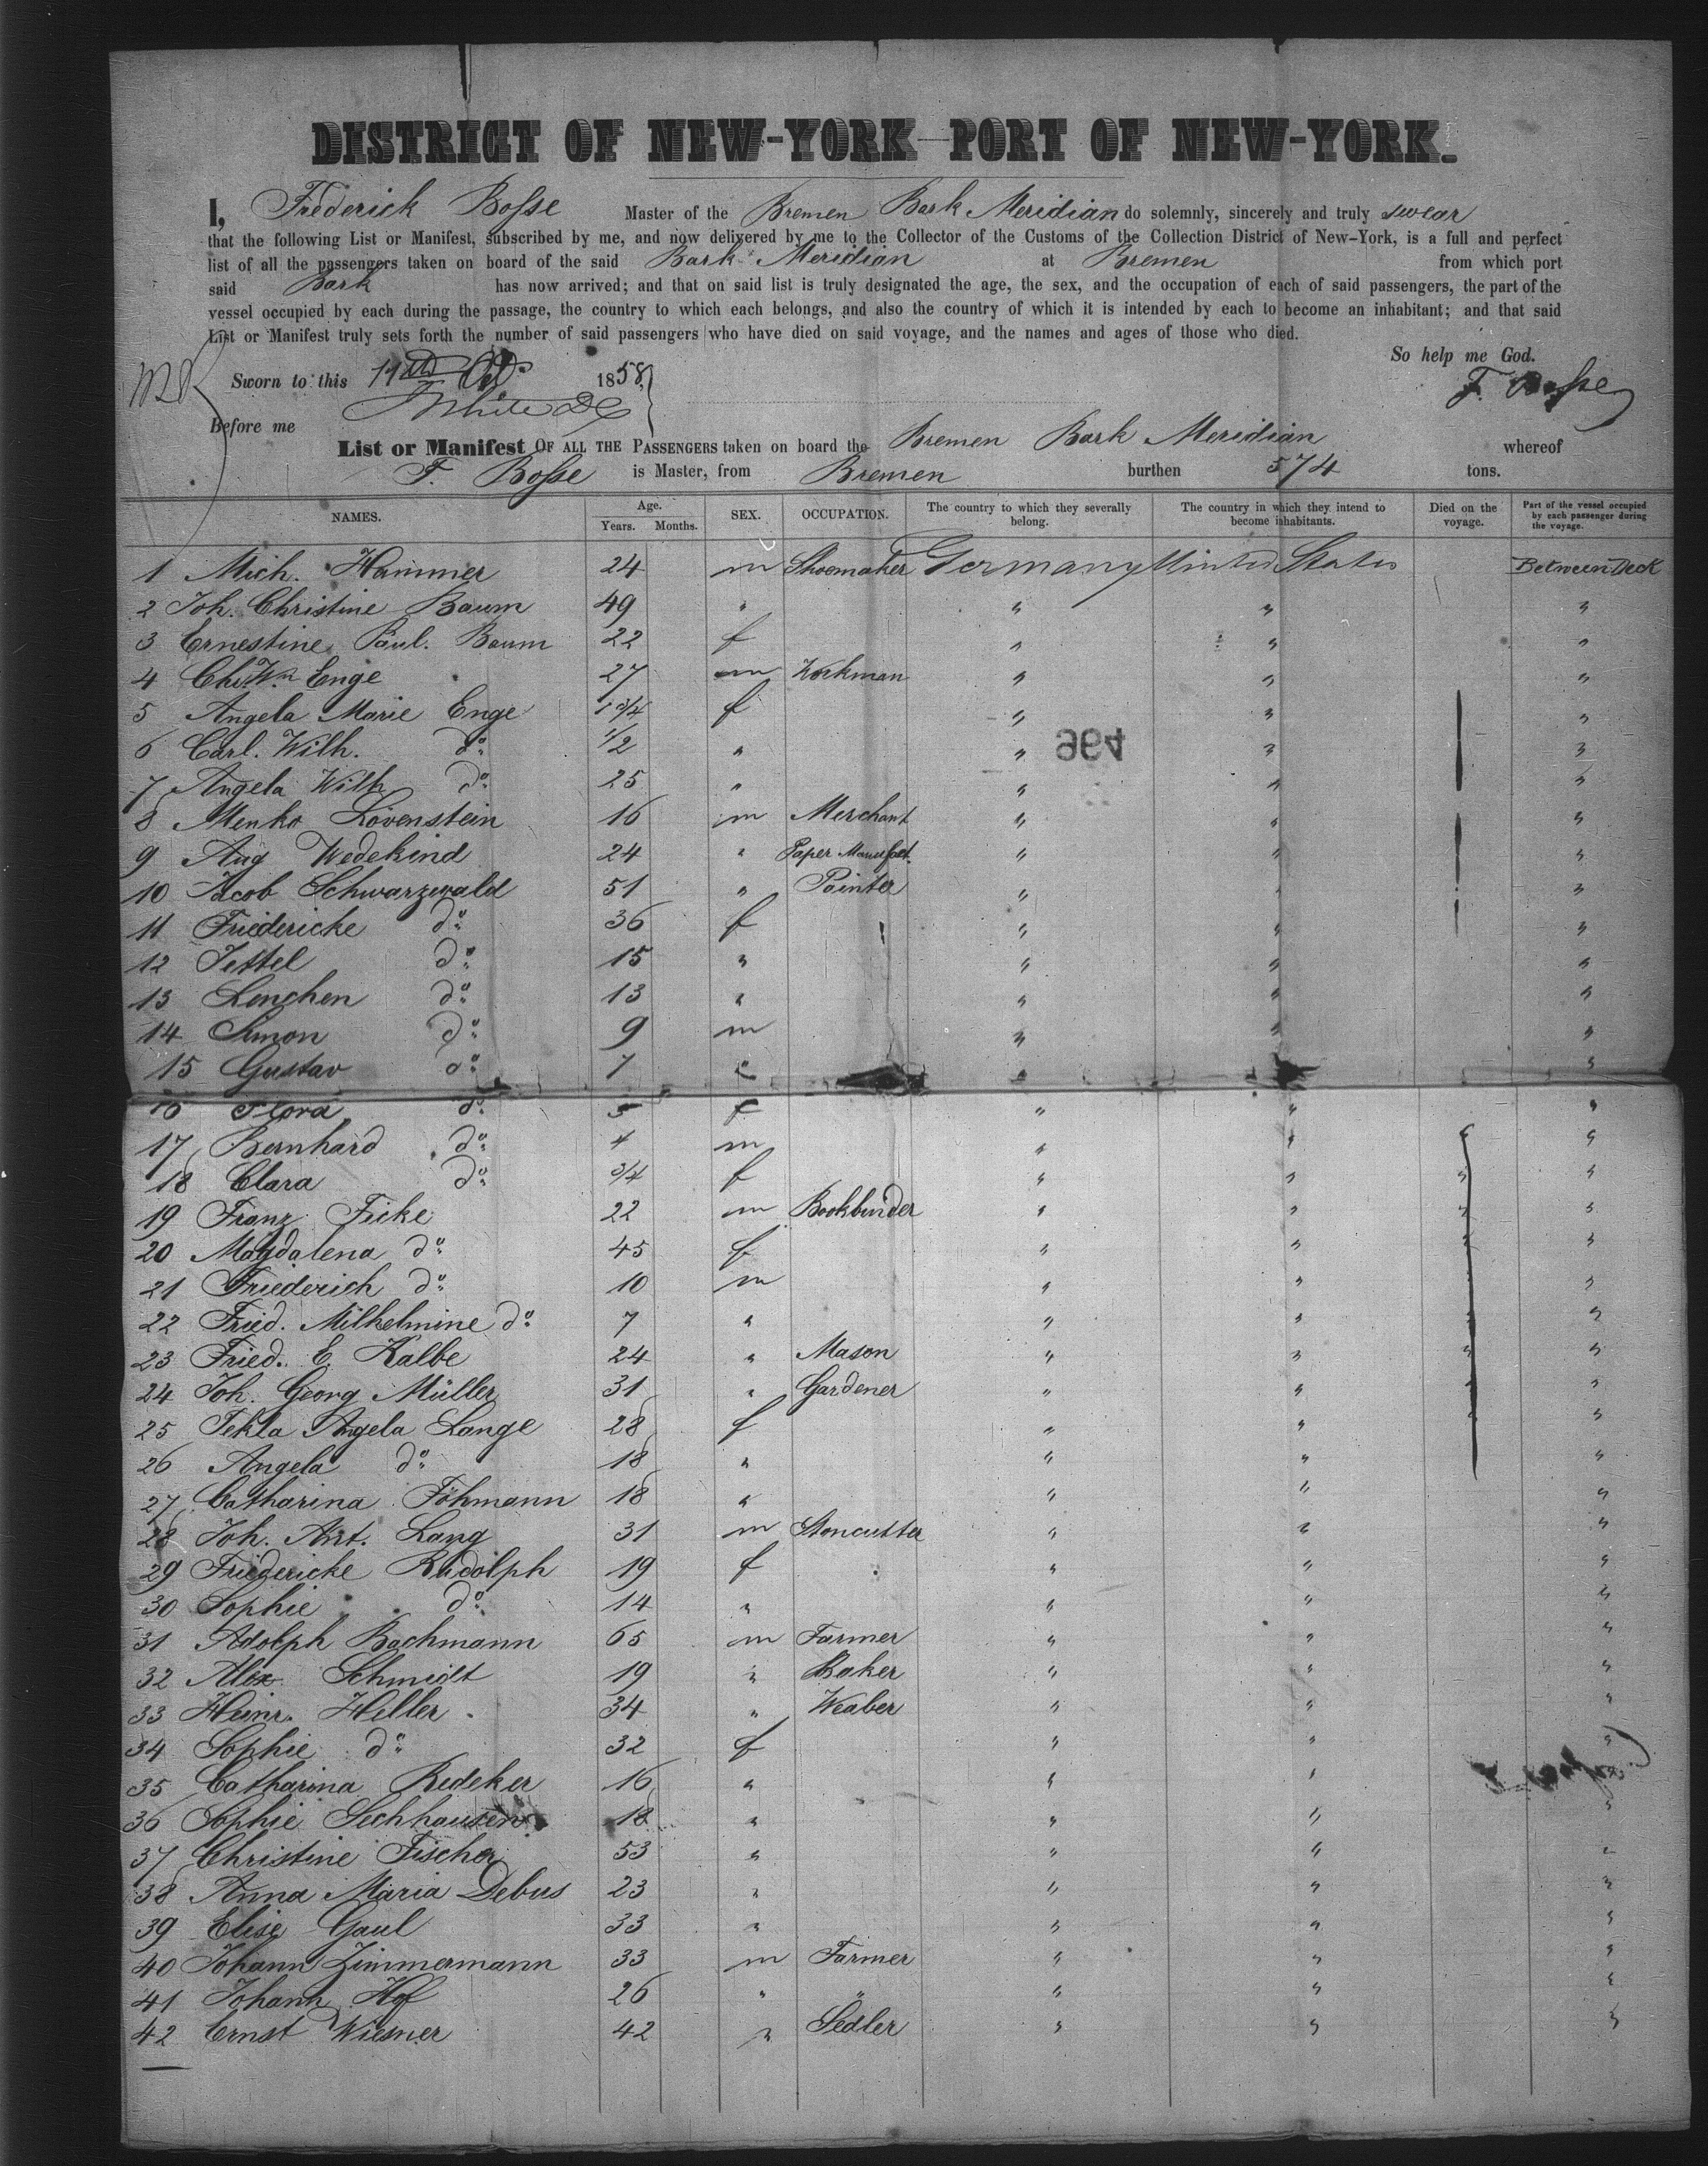 DISTRICT OF NEW-YORK—PORT OF NEW-YORK.
I, Frederick Bosse Master of the Bremen Bark Meridian do solemnly, sincerely and truly swear
that the following List or Manifest, subscribed by me, and now delivered by me to the Collector of the Customs of the Collection District of New-York, is a full and perfect
list of all the passengers taken on board of the said Bark Meridian at Bremen from which port
said Bark has now arrived; and that on said list is truly designated the age, the sex, and the occupation of each of said passengers, the part of the
vessel occupied by each during the passage, the country to which each belongs, and also the country of which it is intended by each to become an inhabitant; and that said
List or Manifest truly sets forth the number of said passengers who have died on said voyage, and the names and ages of those who died.
So help me God.
Sworn to this 1858, F. Bosse
Before me
List or Manifest OF ALL THE PASSENGERS taken on board the Bremen Bark Meridian whereof
F. Bosse is Master, from Bremen burthen 574 tons.
NAMES. Age. Years. Months. SEX. OCCUPATION. The country to which they severally belong. The country in which they intend to become inhabitants. Died on the voyage. Part of the vessel occupied by each passenger during the voyage.
1 Mich. Hammer 24 m Shoemaker Germany United States Between Deck
2 Joh. Christine Baum 49 " " " "
3 Ernestine Paul. Baum 22 f " " "
4 Chr. Wm Enge 27 m Workman " " "
5 Angela Marie Enge 1 3/4 f " " "
6 Carl. Wilh. do 1/2 " " " "
964
7 Angela Wilh do 25 " " " "
8 Menko Lövenstein 16 m Merchant " " "
9 Aug Wedekind 24 " Paper Manufact. " " "
10 Jacob Schwarzwald 51 " Painter " " "
11 Friedericke do 36 f " " "
12 Jettel do 15 " " " "
13 Lenchen do 13 " " " "
14 Simon do 9 m " " "
15 Gustav do 7 " " " "
16 Flora do 5 f " " "
17 Bernhard do 4 m " " "
18 Clara do 3/4 f " " "
19 Franz Ficke 22 m Bookbinder " " "
20 Magdalena do 45 f " " "
21 Friederich do 10 m " " "
22 Fried. Wilhelmine do 7 " " " "
23 Fried. E. Kalbe 24 " Mason " " "
24 Joh. Georg Müller 31 " Gardener " " "
25 Tekla Angela Lange 28 f " " "
26 Angela do 18 " " " "
27 Catharina Föhmann 18 " " " "
28 Joh. Ant. Lang 31 m Stoncutter " " "
29 Friedericke Rudolph 19 f " " "
30 Sophie do 14 " " " "
31 Adolph Bachmann 65 m Farmer " " "
32 Alex Schmidt 19 " Baker " " "
33 Heinr. Heller 34 " Weaber " " "
34 Sophie do 32 f " " "
35 Catharina Redeker 16 " " " "
36 Sophie Sechhausen 18 " " " "
37 Christine Fischer 53 " " " "
38 Anna Maria Debus 23 " " " "
39 Elise Gaul 33 " " " "
40 Johann Zimmermann 33 m Farmer " " "
41 Johann Hof 26 " " " " "
42 Ernst Wiesner 42 " Sedler " " "